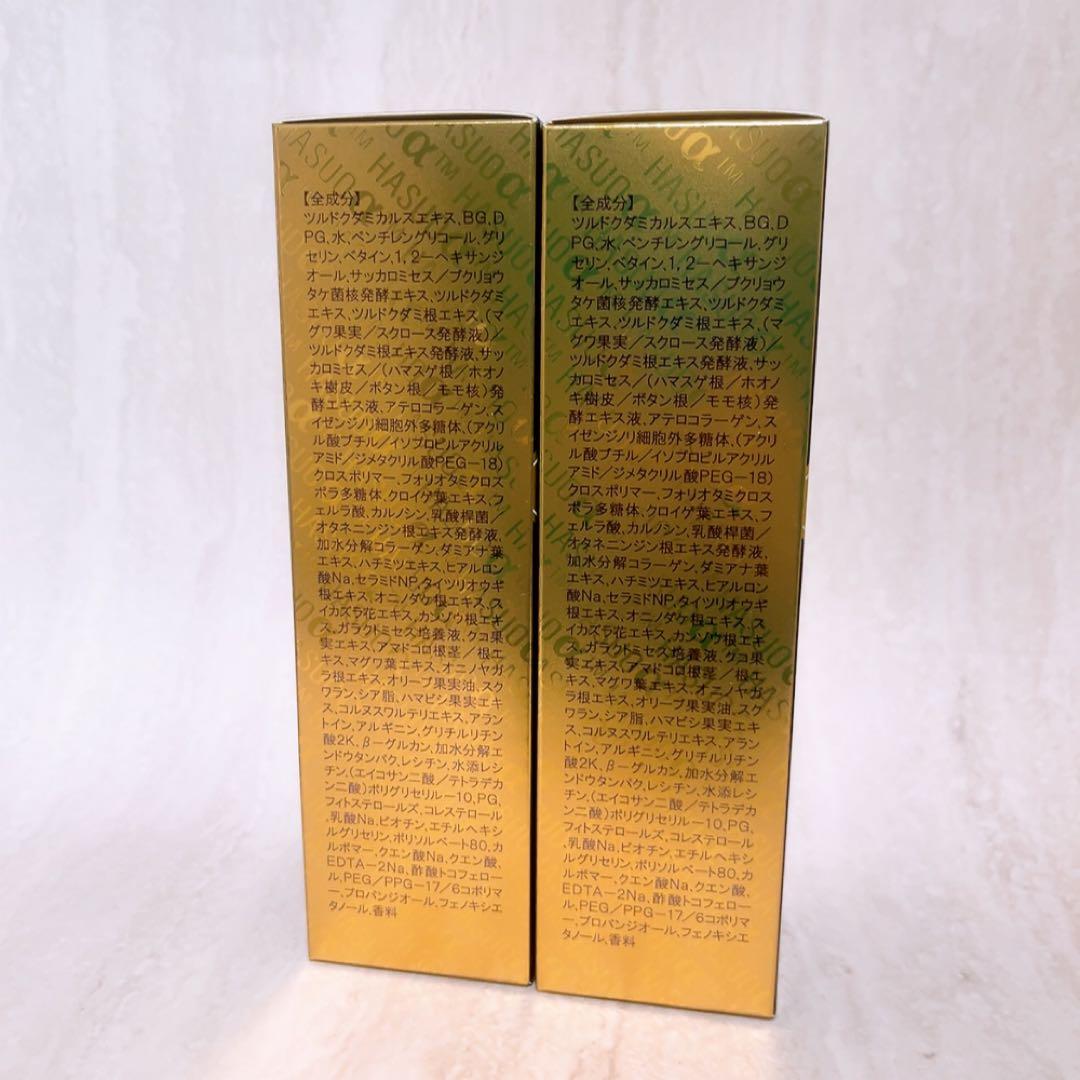 HASUOα™
【全成分】
ツルドクダミカルスエキス、BG、D
PG、水、ペンチレングリコール、グリ
セリン、ベタイン、1,2-ヘキサンジ
オール、サッカロミセス/ブクリョウ
タケ菌核発酵エキス、ツルドクダミ
エキス、ツルドクダミ根エキス、(マ
グワ果実/スクロース発酵液)/
ツルドクダミ根エキス発酵液、サッ
カロミセス/(ハマスゲ根/ホオノ
キ樹皮/ボタン根/モモ核)発
酵エキス液、アテロコラーゲン、ス
イゼンジノリ細胞外多糖体、(アクリ
ル酸ブチル/イソプロピルアクリル
アミド/ジメタクリル酸PEG-18)
クロスポリマー、フォリオタミクロス
ポラ多糖体、クロイゲ葉エキス、フ
ェルラ酸、カルノシン、乳酸桿菌/
オタネニンジン根エキス発酵液、
加水分解コラーゲン、ダミアナ葉
エキス、ハチミツエキス、ヒアルロン
酸Na、セラミドNP、タイツリオウギ
根エキス、オニノダケ根エキス、ス
イカズラ花エキス、カンゾウ根エキ
ス、ガラクトミセス培養液、クコ果
実エキス、アマドコロ根茎/根エ
キス、マグワ葉エキス、オニノヤガ
ラ根エキス、オリーブ果実油、スク
ワラン、シア脂、ハマビシ果実エキ
ス、コルヌスワルテリエキス、アラン
トイン、アルギニン、グリチルリチン
酸2K、β-グルカン、加水分解エ
ンドウタンパク、レシチン、水添レシ
チン、(エイコサン二酸/テトラデカ
ン二酸)ポリグリセリル-10、PG、
フィトステロールズ、コレステロール
、乳酸Na、ビオチン、エチルヘキシ
ルグリセリン、ポリソルベート80、カ
ルボマー、クエン酸Na、クエン酸、
EDTA-2Na、酢酸トコフェロー
ル、PEG/PPG-17/6コポリマ
ー、プロパンジオール、フェノキシエ
タノール、香料
HASUOα™
【全成分】
ツルドクダミカルスエキス、BG、D
PG、水、ペンチレングリコール、グリ
セリン、ベタイン、1,2-ヘキサンジ
オール、サッカロミセス/ブクリョウ
タケ菌核発酵エキス、ツルドクダミ
エキス、ツルドクダミ根エキス、(マ
グワ果実/スクロース発酵液)/
ツルドクダミ根エキス発酵液、サッ
カロミセス/(ハマスゲ根/ホオノ
キ樹皮/ボタン根/モモ核)発
酵エキス液、アテロコラーゲン、ス
イゼンジノリ細胞外多糖体、(アクリ
ル酸ブチル/イソプロピルアクリル
アミド/ジメタクリル酸PEG-18)
クロスポリマー、フォリオタミクロス
ポラ多糖体、クロイゲ葉エキス、フ
ェルラ酸、カルノシン、乳酸桿菌/
オタネニンジン根エキス発酵液、
加水分解コラーゲン、ダミアナ葉
エキス、ハチミツエキス、ヒアルロン
酸Na、セラミドNP、タイツリオウギ
根エキス、オニノダケ根エキス、ス
イカズラ花エキス、カンゾウ根エキ
ス、ガラクトミセス培養液、クコ果
実エキス、アマドコロ根茎/根エ
キス、マグワ葉エキス、オニノヤガ
ラ根エキス、オリーブ果実油、スク
ワラン、シア脂、ハマビシ果実エキ
ス、コルヌスワルテリエキス、アラン
トイン、アルギニン、グリチルリチン
酸2K、β-グルカン、加水分解エ
ンドウタンパク、レシチン、水添レシ
チン、(エイコサン二酸/テトラデカ
ン二酸)ポリグリセリル-10、PG、
フィトステロールズ、コレステロール
、乳酸Na、ビオチン、エチルヘキシ
ルグリセリン、ポリソルベート80、カ
ルボマー、クエン酸Na、クエン酸、
EDTA-2Na、酢酸トコフェロー
ル、PEG/PPG-17/6コポリマ
ー、プロパンジオール、フェノキシエ
タノール、香料